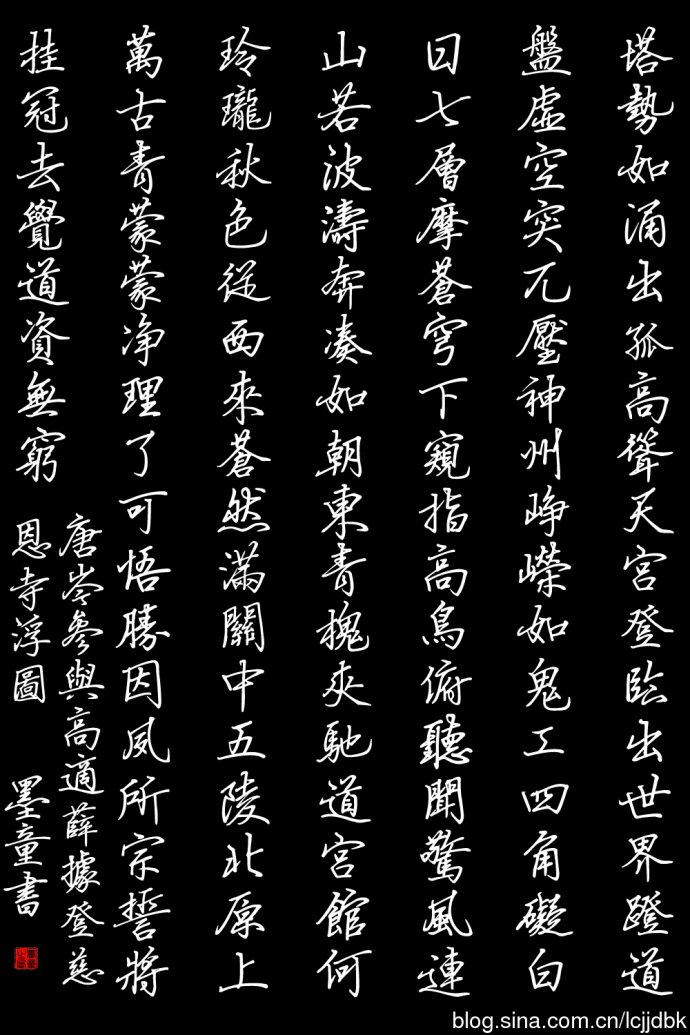 塔勢如涌出孤高聳天宮登臨出世界蹬道
盤虛空突兀壓神州崢嶸如鬼工四角礙白
日七層摩蒼穹下窺指高鳥俯聽聞驚風連
山若波濤奔湊如朝東青槐夾馳道宮館何
玲瓏秋色從西來蒼然滿關中五陵北原上
萬古青蒙蒙净理了可悟勝因夙所宗誓將
挂冠去覺道資無窮
唐岑參與高適薛據登慈
恩寺浮圖 墨童書
blog.sina.com.cn/lcjjdbk